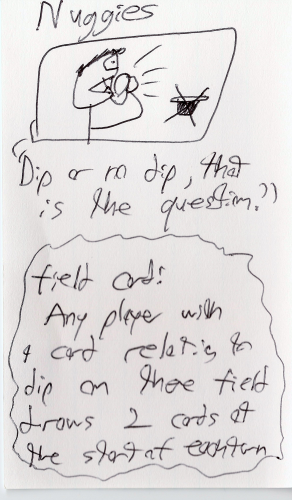 Nuggies
"Dip or no dip, that
is the question."
field card:
Any player with
a card relating to
dip on there field
draws 2 cards at
the start of each turn.